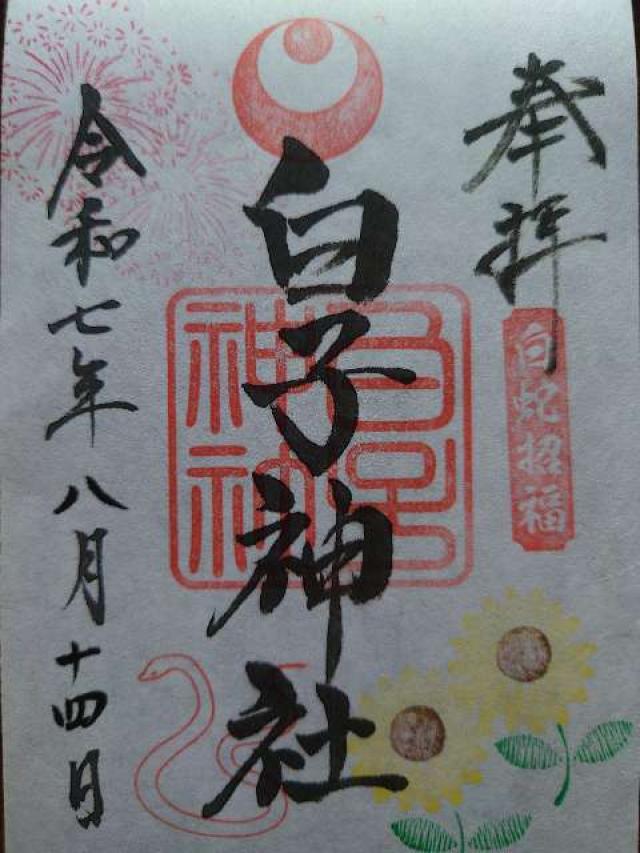 奉拝
白蛇招福
白子神社
令和七年八月十四日